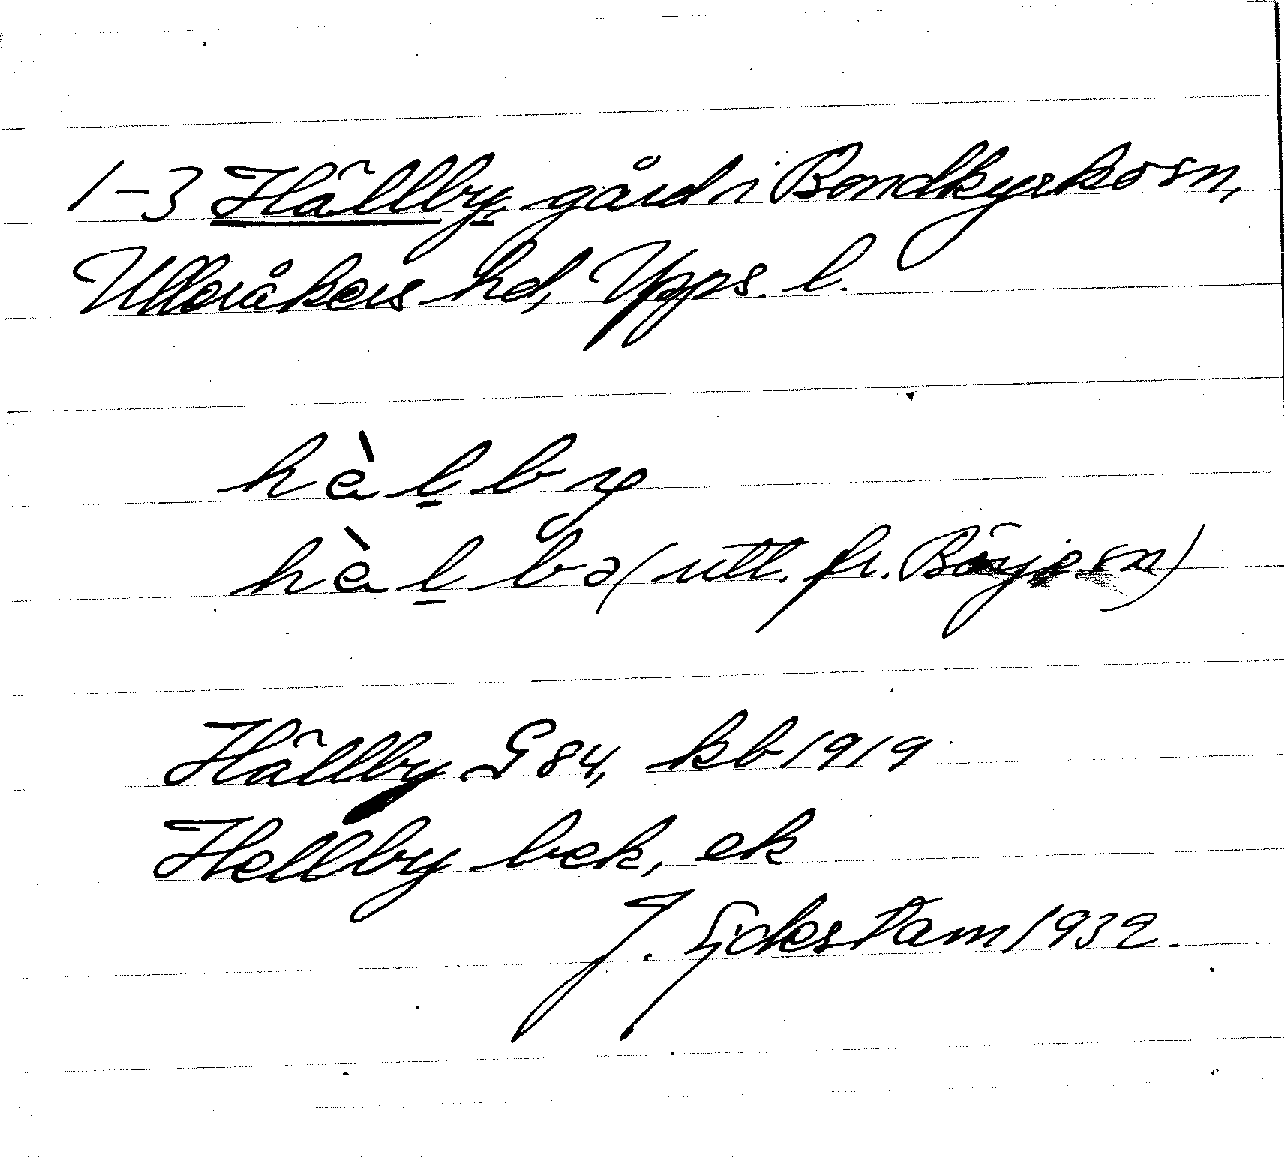 1-3 Hällby, gård i Bondkyrko sn,
Ulleråkers hd, Upps. l.
hàl̲by
hàl̲bə (utt. fr. Börje sn)
Hällby G 84, kb 1919
Hellby bek, ek
J. Sjökvist Tam 1932.